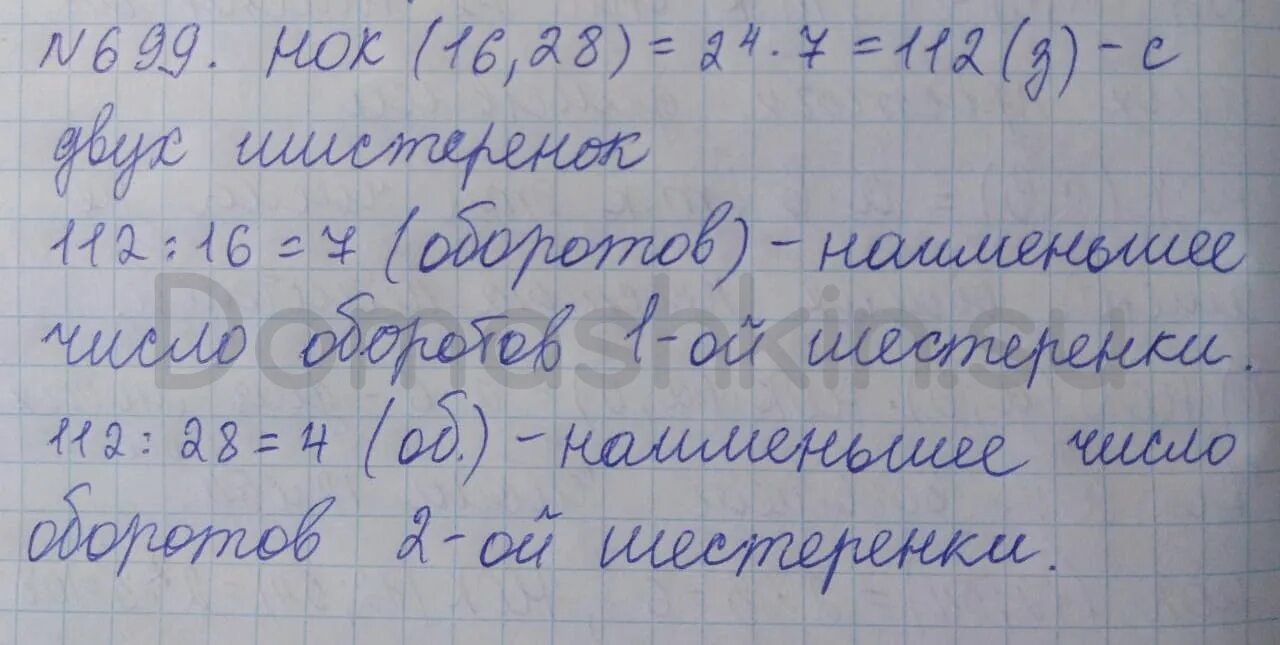 №699. НОК (16,28) = 2⁴·7 = 112 (з) – с
двух шистеренок
112 : 16 = 7 (оборотов) – наименьшее
число оборотов 1-ой шестеренки.
Domashkin.su
112 : 28 = 4 (об.) – наименьшее число
оборотов 2-ой шестеренки.